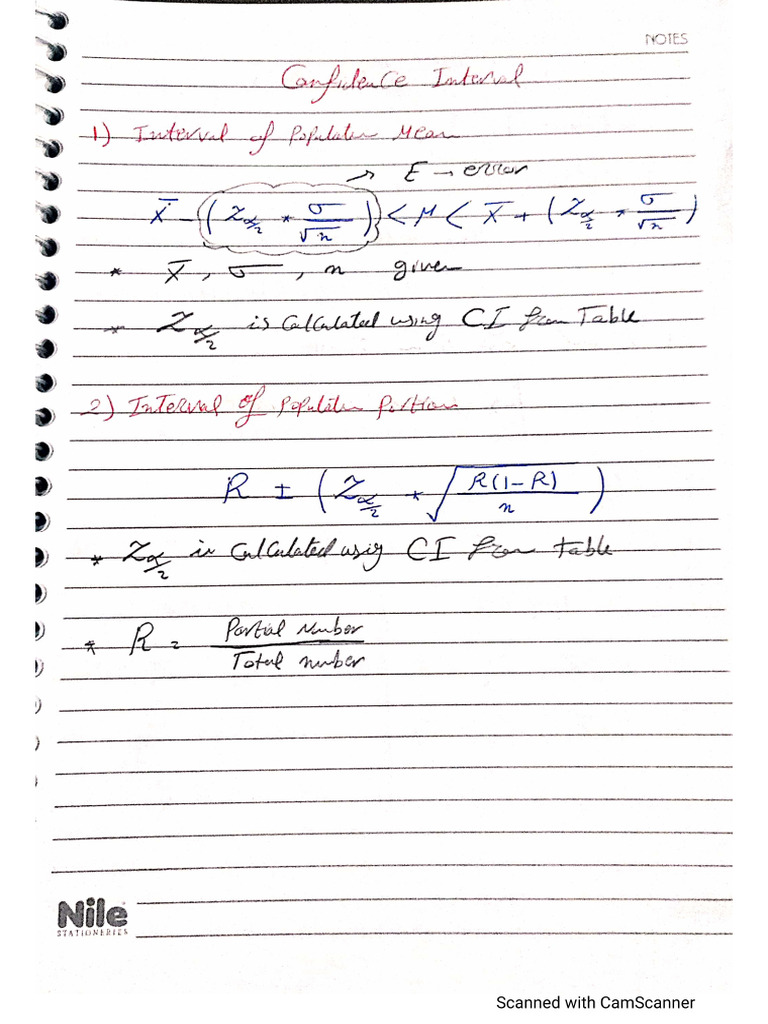 NOTES
Confidence Interval
1) Interval of Population Mean
→ E → error
X̄ - (Z_{α/2} * σ/√n) < μ < X̄ + (Z_{α/2} * σ/√n)
* X̄, σ, n given
* Z_{α/2} is calculated using CI from Table
2) Interval of Population Portion
R ± (Z_{α/2} * √(R(1-R)/n))
* Z_{α/2} is calculated using CI from table
* R = Partial Number / Total number
Nile
STATIONERIES
Scanned with CamScanner